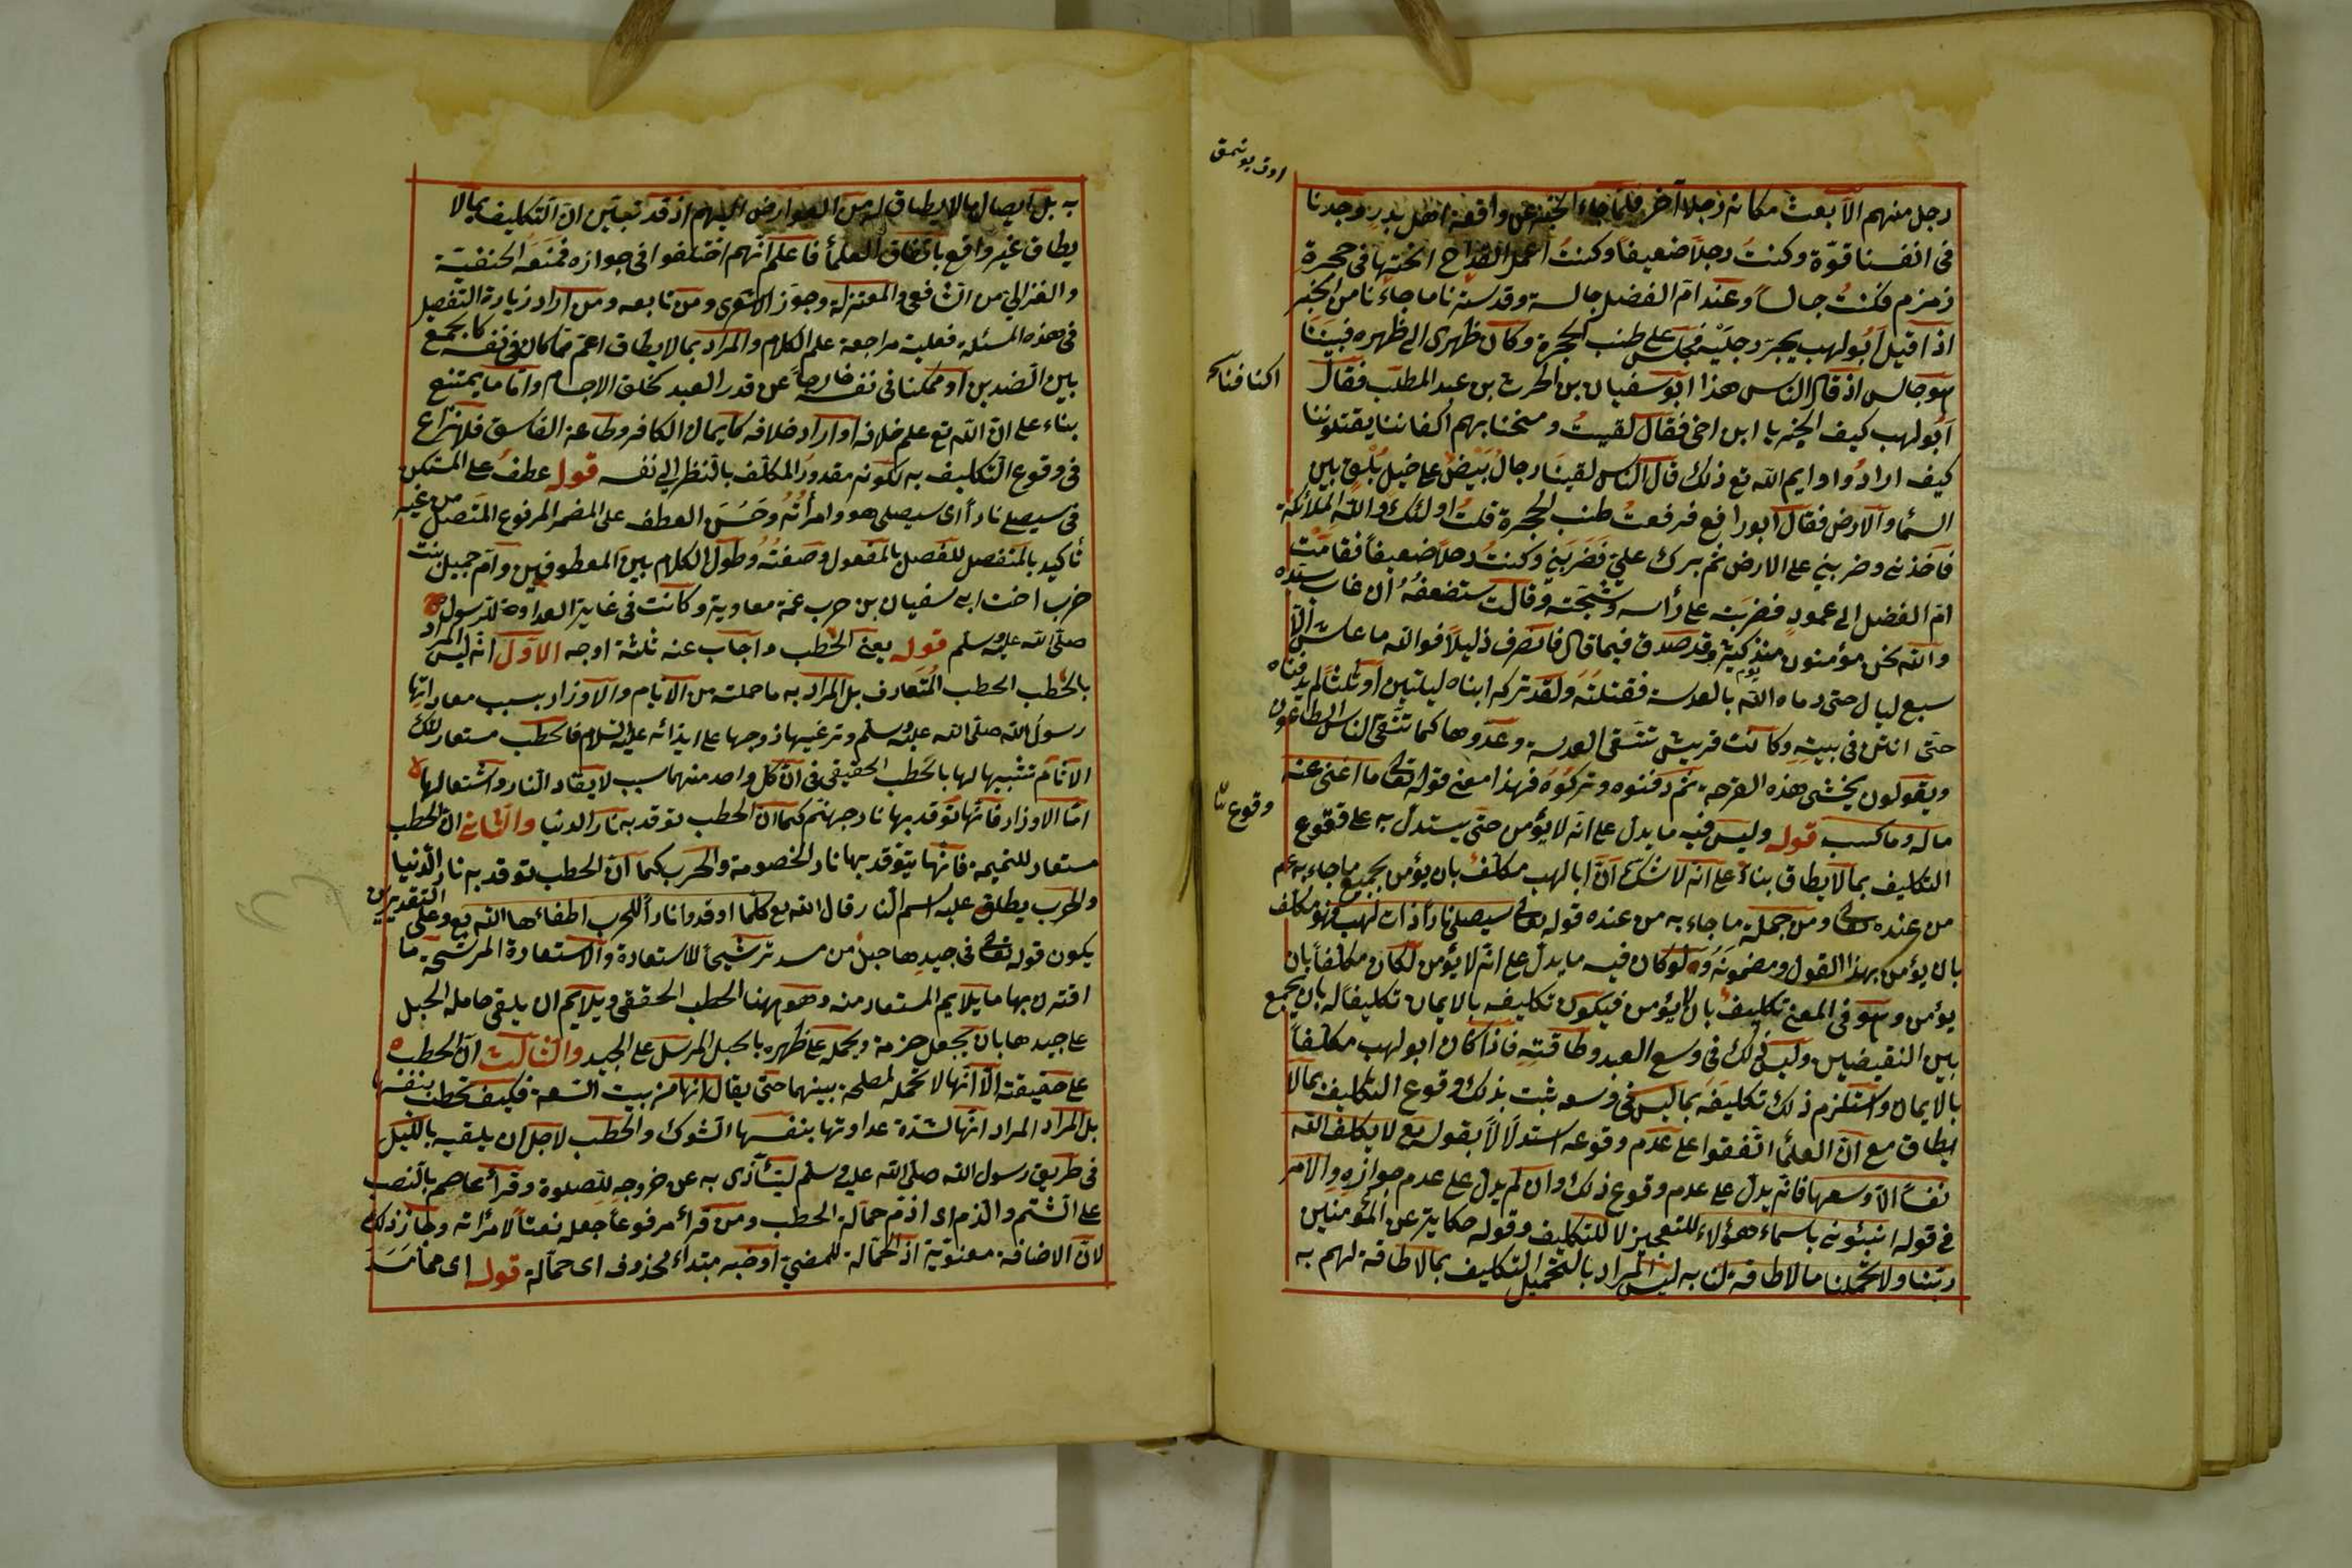 رجل منهم الا بعث مكانه رجلا آخر فلما جاء الخبر عن واقعة اهل بدر وجدنا
فى انفسنا قوّة وكنتُ رجلاً ضعيفاً وكنتُ اعمل القداح انحتها فى حجرة
زمزم فكنتُ جالساً وعند امّ الفضل جالسة وقد سرّنا ما جاءنا من الخبر
اذ اقبل ابُو لهب يجرّ رجليْه فجلس على طنب الحجرة وكان ظهرى الى ظهره فبينَا
هو جالس اذ قال الناس هذا ابو سفيان بن الحرث بن عبد المطلب فقال
ابُو لهب كيف الخبر يا ابن اخى فقال لقيتُ ومنحنا بهم اكفاننا يقتلوننا
كيف ارادُوا وايم الله مع ذلك قال الناس لقينَا رجالٌ بَيْضٌ على خيل بُلْقٍ بين
السّمأ والارض فقال ابو رافع فرفعتُ طنب الحجرة قلتُ اولئك والله الملائكة
فأخذنى وضربنى على الارض ثم برك علىّ فَضَرَبَنِى وكنتُ رجلاً ضعيفاً فقامَتْ
امّ الفضل الى عمودٍ فضرَبَته على رأسه وشجّته وقالت ستضعفُهُ ان غاب سيّده
والله نحن مؤمنون منذ يوم كثيرة وقد صدق فيما قال فانصرف ذليلاً فوالله ما عاش الّا
سبع ليال حتى رماه الله بالعدسة فقتلتَهُ ولقد تركه ابناه ليلتين او ثلثاً لم يدفناه
حتى انتن فى بيته وكانت قريش تتقى العدسة وعدوها كما تتّقى الناس الطاعون
ويقولون نخشى هذه القرحة ثم دفنوه وتركوُهُ فهذا معنى قوله تعالى ما اغنى عنه
ماله وما كسب قوله وليس فيه ما يدلّ على انّه لا يؤمن حتّى يستدلّ به على وقوع
التكليف بما لا يطاق بناءً على انه لا شك ان ابا لهب مكلّف بان يؤمن بجميع ما جاء به عم
من عنده تعالى ومن جملة ما جاء به من عنده قوله تعالى سيصلى ناراً ذات لهب فهو مكلف
بان يؤمن بهذا القول ومضمونه ولو كان فيه ما يدلّ على انّه لا يؤمن لكان مكلفاً بان
يؤمن وهو فى المعنى تكليف بان لا يؤمن فيكون تكليفه بالايمان تكليفاً له بان يجمع
بين النقيضين وليس ذلك فى وسع العبد وطاقته فاذا كان ابو لهب مكلفاً
بالايمان واستلزم ذلك تكليفَه بما ليس فى وسعه ثبت بذلك وقوع التكليف بما لا
يطاق مع انّ العلمأ اتّفقوا على عدم وقوعه استدلالاً بقوله تع لا يكلف الله
نفساً الاّ وسعها فانّه يدلّ على عدم وقوع ذلك وان لم يدلّ على عدم جوازه والامر
فى قوله انبئونى باسماء هؤلاء للتعجيز لا للتكليف وقوله حكاية عن المؤمنين
ربّنا ولا تحمّلنا ما لا طاقة لنا به ليس المراد بالتحميل التكليف بما لا طاقة لهم به
وقوع
به بل ايصال ما لا يطاق له من العوارض اليهم اذ قد تعيّن انّ التكليف بما لا
يطاق غير واقع باتفاق العلمأ فاعلم انّهم اختلفوا فى جوازه فمنعَهُ الحنفيّة
والغزالى من الشافعى والمعتزلة وجوّز الاشعرى ومن تابعه ومن اراد زيادة التفصيل
فى هذه المسئلة فعليه مراجعة علم الكلام والمراد بما لا يطاق اعمّ مّما كان فى نفسه كالجمع
بين الضدين او ممكنا فى نفسه خارجاً عن قدر العبد كخلق الاجسام وامّا ما يمتنع
بناء على ان الله تع علم خلافه او اراد خلافه كايمان الكافر وطاعة الفاسق فلا نزاع
فى وقوع التكليف به لكونه مقدورَ المكلّف بالنظر الى نفسه قوله عطفٌ على المستكن
فى سيصلى ناراً اى سيصلى هو وامرأتُهُ وحَسُنَ العطف على المضمر المرفوع المتصل من غير
تأكيد بالمنفصل للفصل بالمفعول وصفتُهُ وطول الكلام بين المعطوفين وام جميل بنت
حرب اخت ابى سفيان بن حرب عمّة معاوية وكانت فى غاية العداوة للرسول
صلّى الله عليه وسلم قوله يعنى الحطب واجاب عنه ثلثة اوجه الاوّل انّه ليس المراد
بالحطب الحطب المُتعارف بل المراد به ما حملته من الآثام والاوزار بسبب معاداتها
رسول الله صلى الله عليه وسلم وترغيبها زوجها على ايذائه عليه السلام فالحطب مستعار لتلك
الآثام تشبيها لها بالحطب الحقيقى فى انّ كلّ واحد منهما سبب لايقاد النار واشتعالها
امّا الاوزار فانّها توقد بها نار جهنّم كما ان الحطب توقد به نار الدنيا والثانى ان الحطب
مستعار للنميمة فانّها يتوقد بها نار الخصومة والحرب كما انّ الحطب توقد به نار الدنيا
والحرب يطلق عليه اسم النار قال الله تع كلما اوقدوا ناراً للحرب اطفاءها الله تع وعلى التقديرين
يكون قوله تعالى فى جيدها حبل من مسد ترشيحاً للاستعارة والاستعارة المرشّحة ما
اقترن بها ما يلايم المستعار منه وهو ههنا الحطب الحقيقى ويلايم ان يلقى حامله الحبل
على جيدها بان يجعل حزمة ويحمله على ظهره بالحبل المرسل على الجيد والثالث انّ الحطب
على حقيقته الّا انّها لا تحمله لمصلحة بينهما حتى يقال انها من بيت السعة فكيف تحطب بنفسها
بل المراد المراد انّها لشدة عداوتها بنفسها الشوك والحطب لاجل ان يلقيه بالليل
فى طريق رسول الله صلى الله عليه وسلم ليتأذى به عن خروجه للصلوة وقرأ عاصم بالنصب
على الشتم والذم اى اذمّ حمّالة الحطب ومن قرأ مرفوعاً جعله نعتاً لامرأته وجاز ذلك
لانّ الاضافة معنويّة اذ الحمّالة للمضىّ او خبر مبتداء محذوف اى حمّالة قوله اى ممّا مَسَدَ